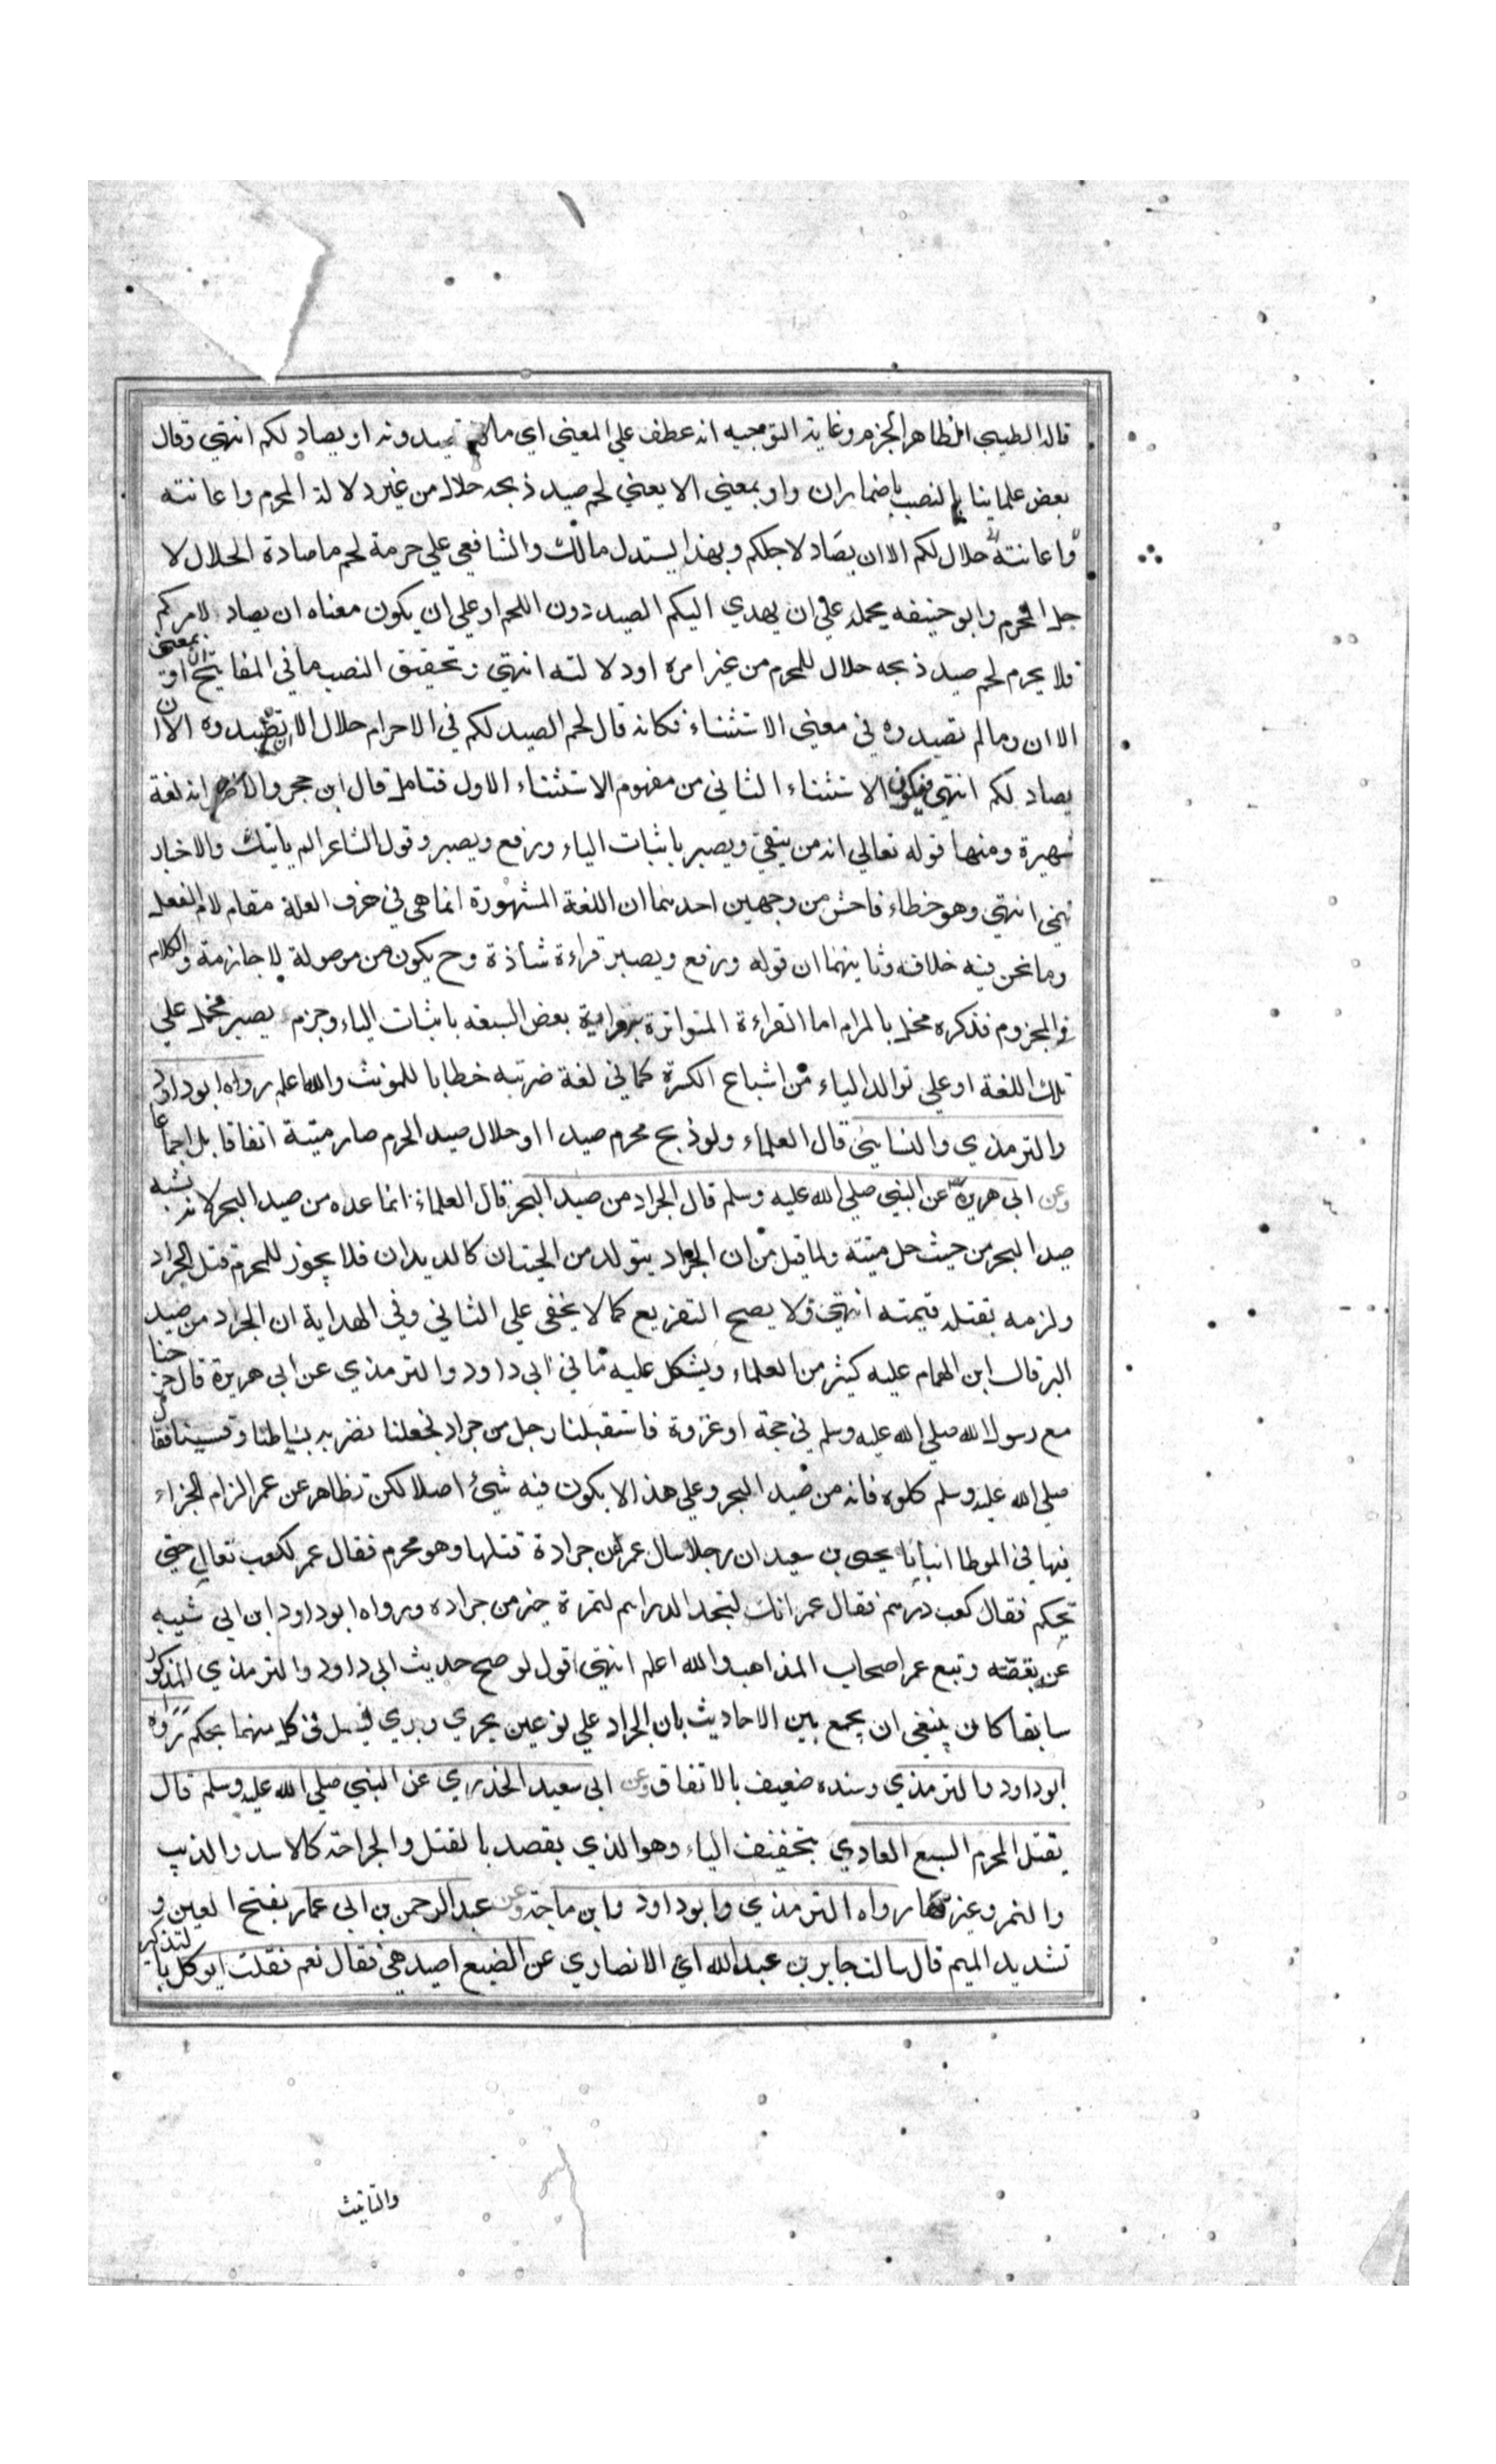 قال الطيبي الظاهر الجزم وغاية التوجيه انه عطف علي المعني اي مالم تصيدونه او يصاد لكم انتهي وقال
بعض علماينا بالنصب باضمار ان واو بمعني الا يعني لحم صيد ذبحه حلال من غير دلالة المحرم واعانته
واعانته حلال لكم الا ان يصاد لاجلكم وبهذا يستدل مالك والشافعي علي حرمة لحم ما صادة الحلال لا
جل المحرم وابو حنيفه يحمله علي ان يهدي اليكم الصيد دون اللحم او علي ان يكون معناه ان يصاد لامركم
فلا يحرم لحم صيد ذبحه حلال للمحرم من غير امره او دلالته انتهي وتحقيق النصب ما في المفاتيح ان او بمعني
الا ان وما لم تصيدوه في معني الاستثناء فكانه قال لحم الصيد لكم في الاحرام حلال الا ان تصيدوه الا ان
يصاد لكم انتهي فيكون الاستثناء الثاني من مفهوم الاستثناء الاول فتامل قال ابن حجر والظاهر انه لغة
شهيرة ومنها قوله تعالي انه من يتقي ويصبر باثبات الياء ورفع ويصبر وقول الشاعر الم ياتيك والاخبار
تنمي انتهي وهو خطاء فاحش من وجهين احدهما ان اللغة المشهورة انما هي في حرف العلة مقام لام الفعل
وما نحن فيه خلافه وثانيهما ان قوله ورفع ويصبر قراءة شاذة وح يكون من موصولة لا جازمة والكلام
في المجزوم فذكره مخل بالمرام اما القراءة المتواترة برواية بعض السبعه باثبات الياء وجزم يصبر محمل علي
تلك اللغة او علي توالد الياء من اشباع الكسرة كما في لغة ضربته خطابا للمونث والله اعلم رواه ابو داود
والترمذي والنسايي قال العلماء ولو ذبح محرم صيدا او حلال صيد الحرم صار ميتة اتفاقا بل اجماعا
وعن ابي هريرة عن النبي صلي الله عليه وسلم قال الجراد من صيد البحر قال العلماء انما عده من صيد البحر لانه يشبه
صيد البحر من حيث حل ميتته ولما قيل من ان الجراد يتولد من الحيتان كالديدان فلا يجوز للمحرم قتل الجراد
ولزمه بقتله قيمته انتهي ولا يصح التفريع كما لا يخفي علي الثاني وفي الهداية ان الجراد من صيد
البر قال ابن الهمام عليه كثير من العلماء ويشكل عليه ما في ابي داود والترمذي عن ابي هريرة قال خرجنا
مع رسول الله صلي الله عليه وسلم في حجة او غزوة فاستقبلنا رجل من جراد فجعلنا نضربه بسياطنا وقسينا فقال
صلي الله عليه وسلم كلوه فانه من صيد البحر وعلي هذا لا يكون فيه شيئ اصلا لكن تظاهر عن عمر الزام الجزاء
فيها في الموطا انبانا يحيى بن سعيد ان رجلا سال عمر عن جرادة قتلها وهو محرم فقال عمر لكعب تعال حتي
تحكم فقال كعب درهم فقال عمر انك لتجد الدراهم لتمرة خير من جراده ورواه ابو داود ابن ابي شيبه
عن بقصته وتبع عمر اصحاب المذاهب والله اعلم انتهي اقول لو صح حديث ابي داود والترمذي المذكور
سابقا كان ينبغي ان يجمع بين الاحاديث بان الجراد علي نوعين بحري وبري فيعمل في كل منهما بحكمه رواه
ابو داود والترمذي وسنده ضعيف بالاتفاق وعن ابي سعيد الخدري عن النبي صلي الله عليه وسلم قال
يقتل المحرم السبع العادي بتخفيف الياء وهو الذي يقصد بالقتل والجراحة كالاسد والذيب
والنمر وغيرها رواه الترمذي وابو داود وابن ماجة وعن عبد الرحمن بن ابي عمار بفتح العين و
تشديد الميم قال سالت جابر بن عبد الله اي الانصاري عن الضبع اصيد هي فقال نعم فقلت ايوكل بالتذكير
والتانيث